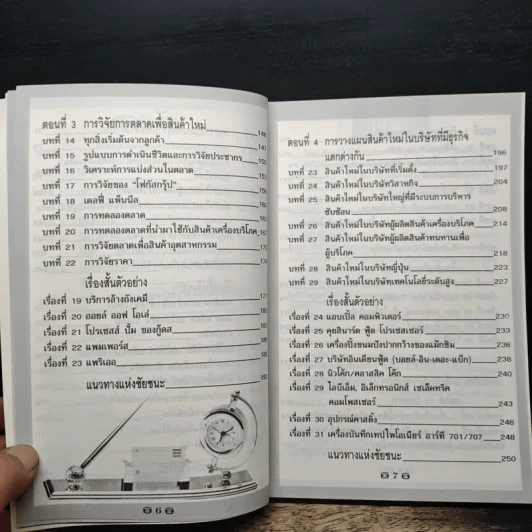 ตอนที่ 3 การวิจัยการตลาดเพื่อสินค้าใหม่
บทที่ 14 ทุกสิ่งเริ่มต้นจากลูกค้า
บทที่ 15 รูปแบบการดำเนินชีวิตและการวิจัยประชากร
บทที่ 16 วิเคราะห์การแบ่งส่วนในตลาด
บทที่ 17 การวิจัยของ "โฟกัสกรุ๊ป"
บทที่ 18 เดลฟี่ แพ็นนีล
บทที่ 19 การทดลองตลาด
บทที่ 20 การทดลองตลาดที่นำมาใช้กับสินค้าเครื่องบริโภค
บทที่ 21 การวิจัยตลาดเพื่อสินค้าอุตสาหกรรม
บทที่ 22 การวิจัยราคา
เรื่องสั้นตัวอย่าง
เรื่องที่ 19 บริการล้างถังเคมี
เรื่องที่ 20 ออยล์ ออฟ โอเล่
เรื่องที่ 21 โปรเสสส์ ปั้ม ของกู๊ดส
เรื่องที่ 22 แพมเพอร์ส
เรื่องที่ 23 แพริเออ
แนวทางแห่งชัยชนะ
6
ตอนที่ 4 การวางแผนสินค้าใหม่ในบริษัทที่มีธุรกิจ
แตกต่างกัน 196
บทที่ 23 สินค้าใหม่ในบริษัทที่เริ่มตั้ง 197
บทที่ 24 สินค้าใหม่ในบริษัทวิสาหกิจ 204
บทที่ 25 สินค้าใหม่ในบริษัทใหญ่ที่มีระบบการบริหาร
ซับซ้อน 208
บทที่ 26 สินค้าใหม่ในบริษัทผู้ผลิตสินค้าเครื่องบริโภค 214
บทที่ 27 สินค้าใหม่ในบริษัทผู้ผลิตสินค้าทนทานเพื่อ
ผู้บริโภค 218
บทที่ 28 สินค้าใหม่ในบริษัทญี่ปุ่น 223
บทที่ 29 สินค้าใหม่ในบริษัทเทคโนโลยี่ระดับสูง 227
เรื่องสั้นตัวอย่าง
เรื่องที่ 24 แอบเปิ้ล คอมพิวเตอร์ 230
เรื่องที่ 25 คุยสินาร์ต ฟู้ด โปรเซสเซอร์ 233
เรื่องที่ 26 เครื่องปิ้งขนมปังปากกว้างของแม็กซิม 236
เรื่องที่ 27 บริษัทอินเดียนฟู้ด (บอยล์-อิน-เดอะ-แบ็ก) 238
เรื่องที่ 28 นิวโค้ก/คลาสสิค โค้ก 240
เรื่องที่ 29 ไอบีเอ็ม, อิเล็กทรอนิกส์ เซเล็คทริค
คอมโพสเซอร์ 243
เรื่องที่ 30 อุปกรณ์คาสติ้ง 246
เรื่องที่ 31 เครื่องบันทึกเทปไพโอเนียร์ อาร์ที 701/707 248
แนวทางแห่งชัยชนะ 250
7